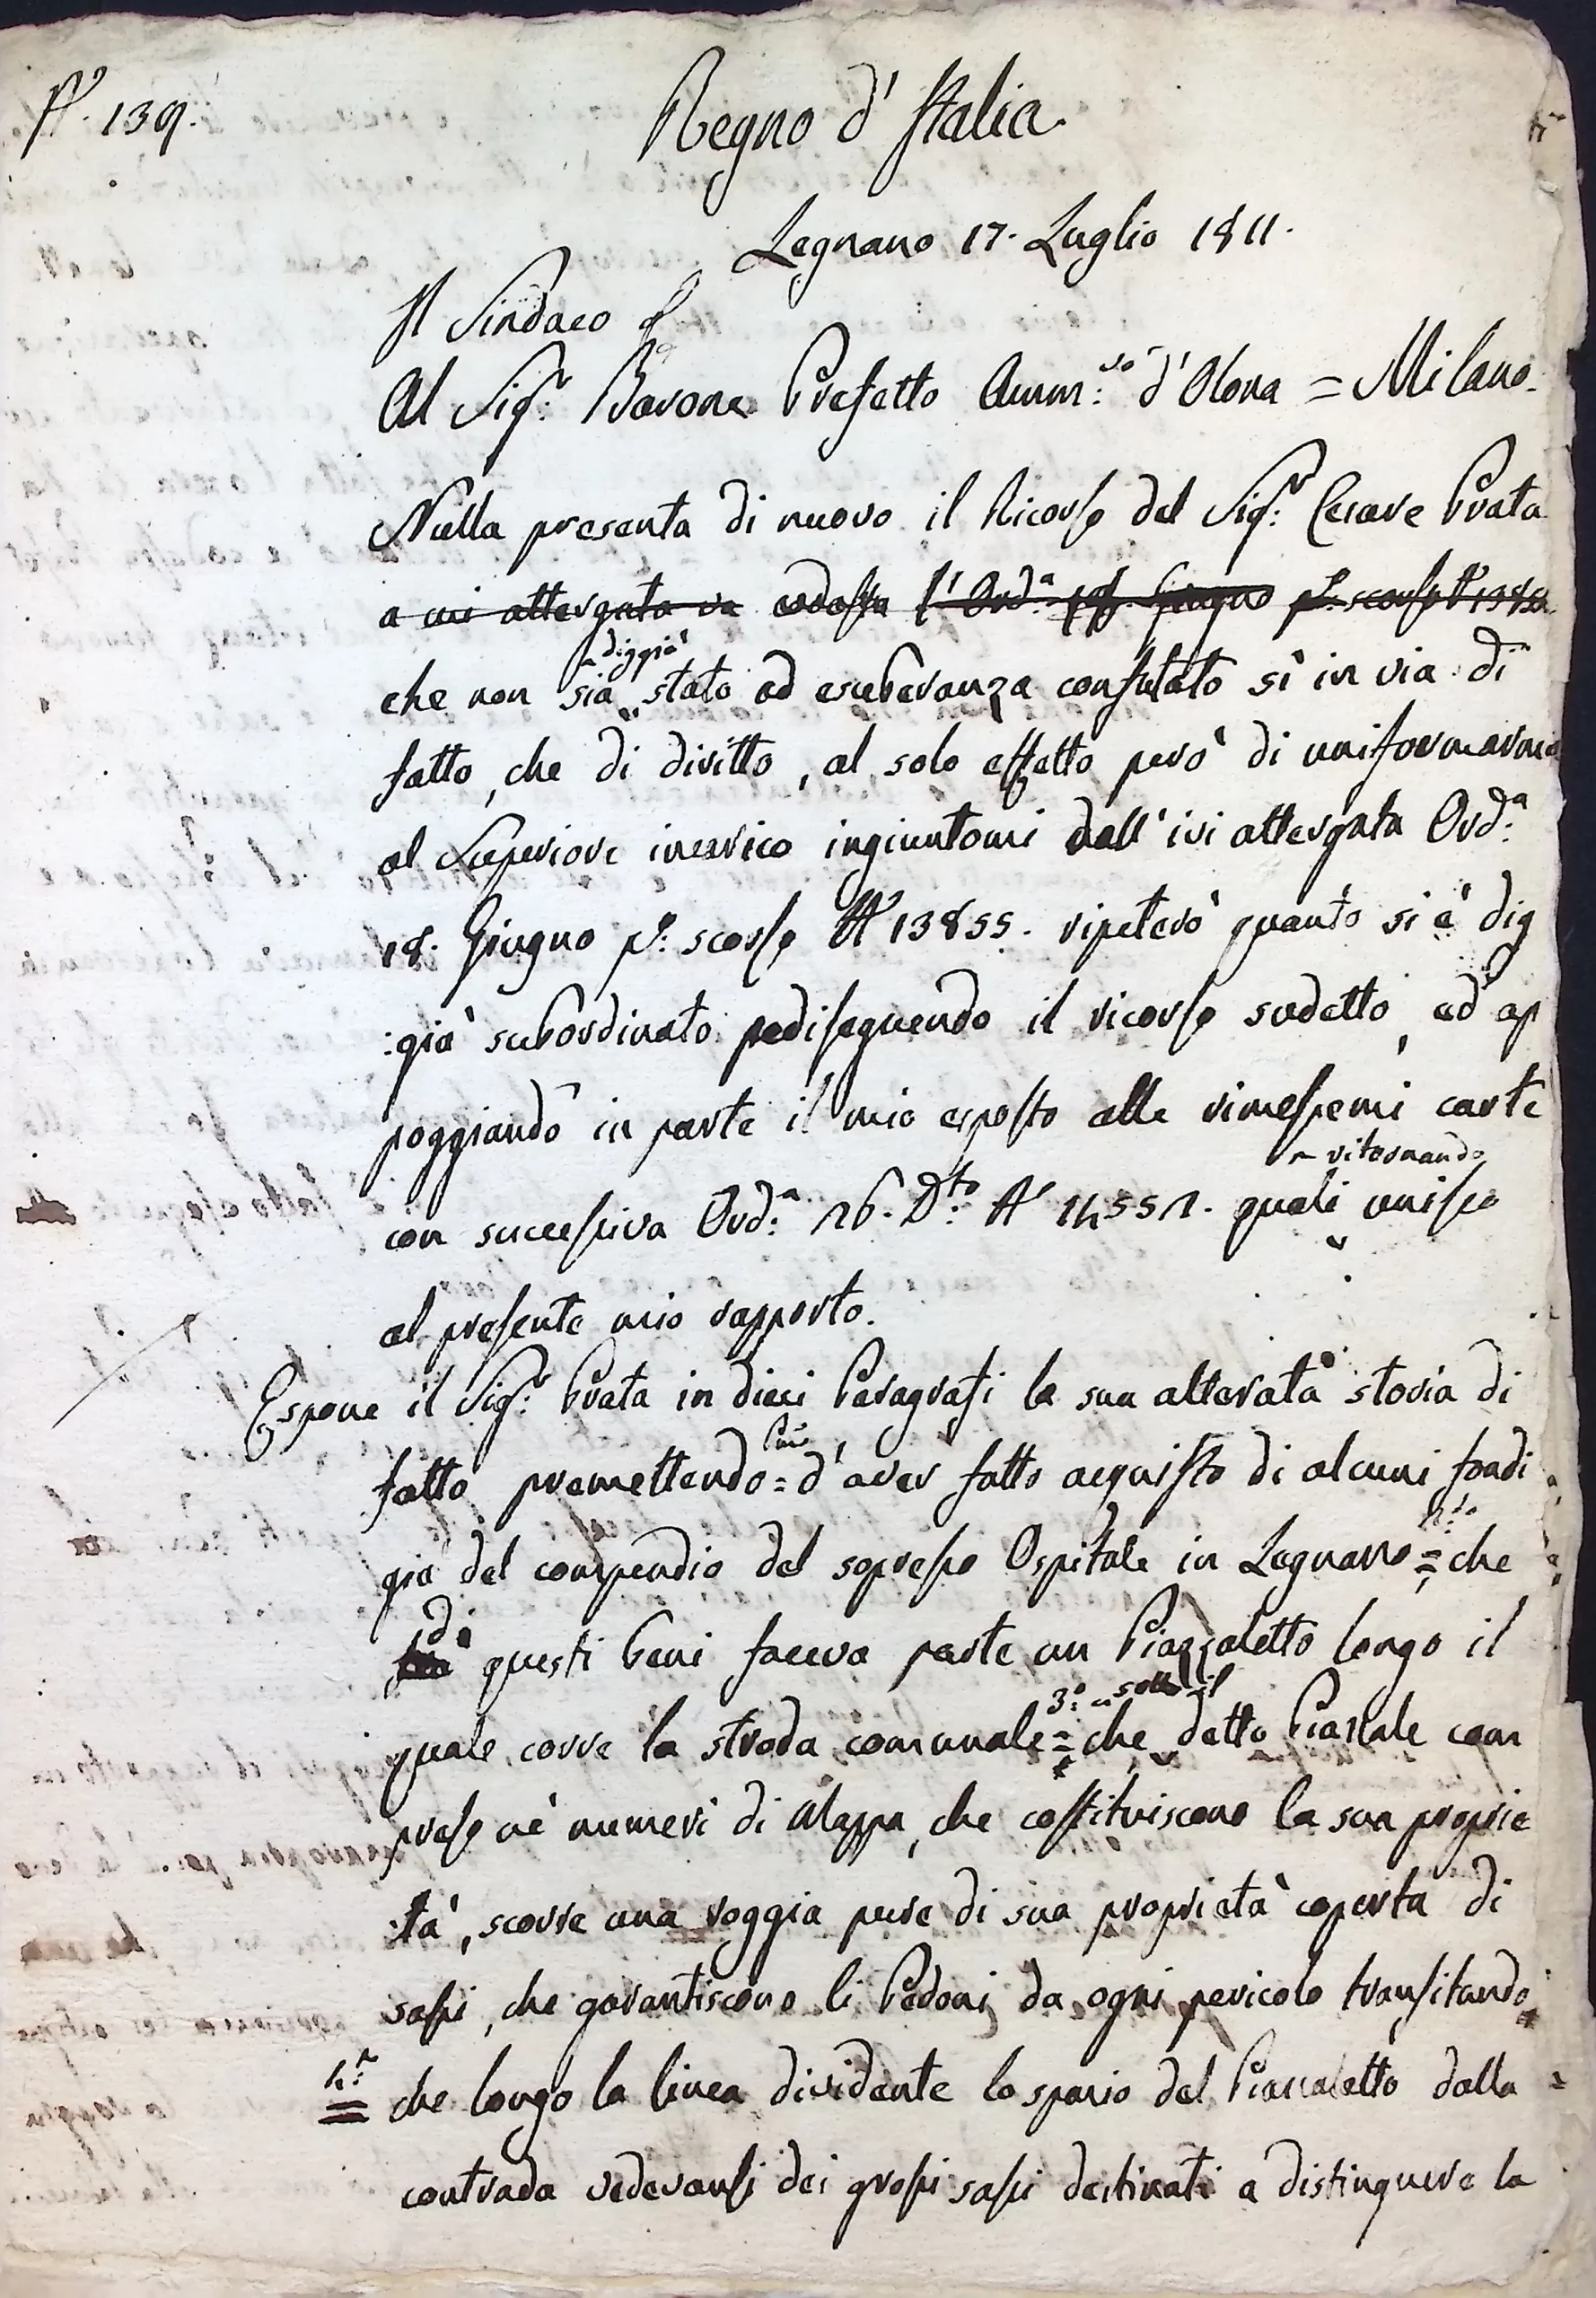 N.° 139.
Regno d'Italia.
Legnano 17. Luglio 1811.
Il Sindaco
Al Sig.r Barone Prefetto Amm:vo d'Olona = Milano.
Nulla presenta di nuovo il Ricorso del Sig.r Cesare Prata
a cui attergata va codesta l'Ord.a 18. Giugno p.° scorso N° 13855.
che non sia diggià stato ad esuberanza confutato sì in via di
fatto, che di diritto, al solo effetto però di uniformarmi
al Superiore incarico ingiuntomi dall'ivi attergata Ord.a
18. Giugno p.° scorso N° 13855. ripeterò quanto si è dig
:già subordinato pedisequendo il ricorso sudetto, ed ap
poggiando in parte il mio esposto alle rimessemi carte
con successiva Ord.a 26. D.to N° 14552. quali ritornando unisco
al presente mio rapporto.
Espone il Sig.r Prata in dieci Paragrafi la sua alterata storia di
fatto premettendo = P.mo d'aver fatto acquisto di alcuni fondi
già del compendio del sopresso Ospitale in Legnano = 2.do che
di questi beni faceva parte un Piazzaletto longo il
quale corre la strada comunale = 3.° che sotto il detto Piazzale com
preso nè numeri di Mappa, che costituiscono la sua proprie
:tà, scorre una roggia pure di sua proprietà coperta di
sassi, che garantiscono li Pedoni da ogni pericolo transitando
4.° = che longo la linea dividente lo spazio del Piazzaletto dalla
contrada vedevansi dei grossi sassi destinati a distinguere la